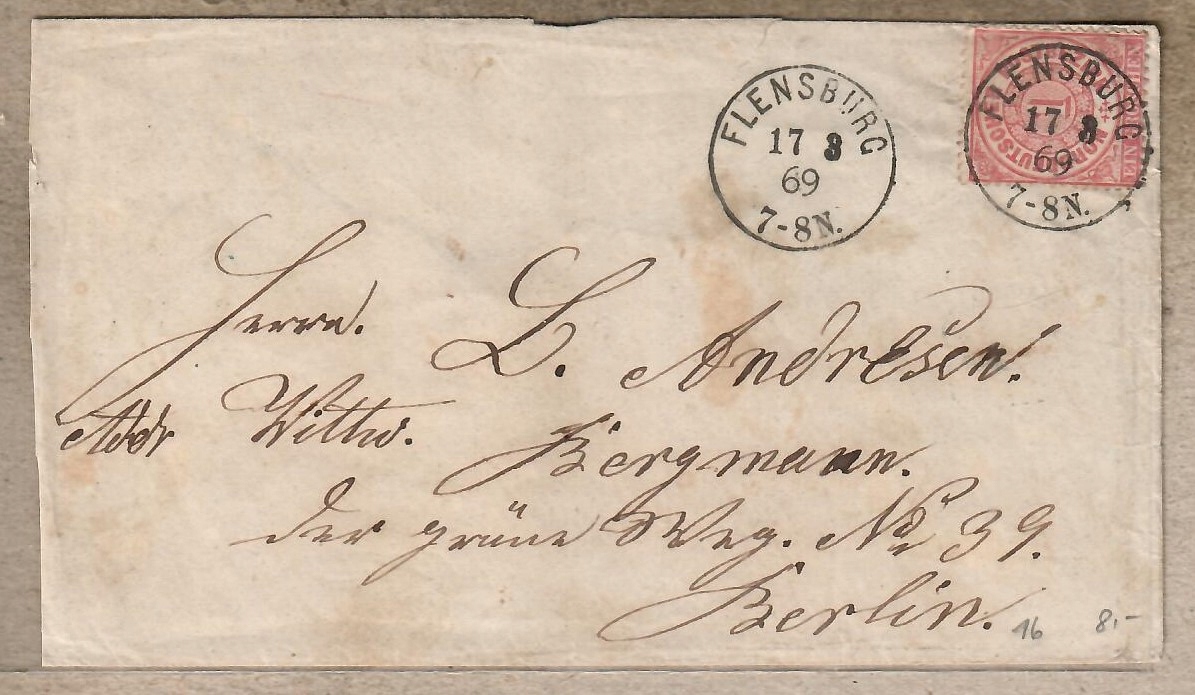 FLENSBURG
17 3
69
7-8N.
FLENSBURG
17 3
69
7-8N.
1
Herrn. L. Andresen.
Addr Wittw. Bergmann.
der grüne Weg. No 39.
Berlin.
16 8.-